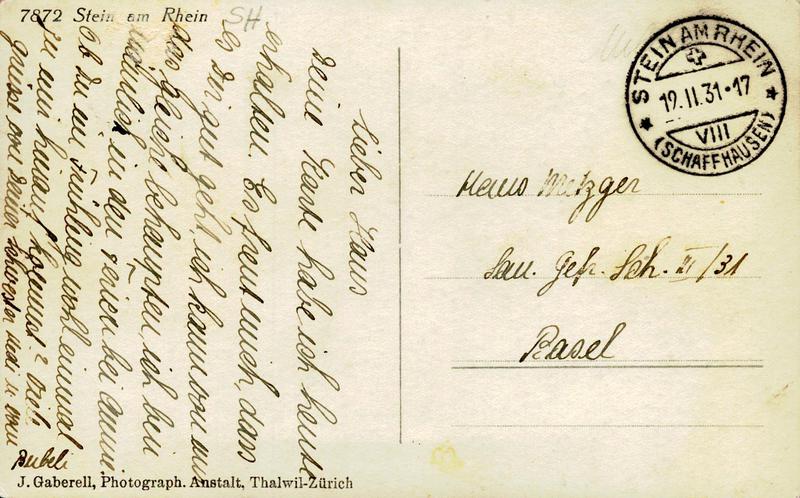 7872 Stein am Rhein
SH
Lieber Hans
Deine Karte habe ich heute
erhalten. Es freut mich, dass
es Dir gut geht, ich kann von mir
das Gleiche behaupten ich bin
nämlich in den Ferien bei
Ob Du im Frühling wohl einmal
zu ein hinauf kommst? Viele
grüsse von Deiner Schwester
Bubeli
J. Gaberell, Photograph. Anstalt, Thalwil-Zürich
STEIN AM RHEIN
12.II.31-17
VIII
(SCHAFFHAUSEN)
Hans Metzger
San. Gefr. Sch. III/31
Basel